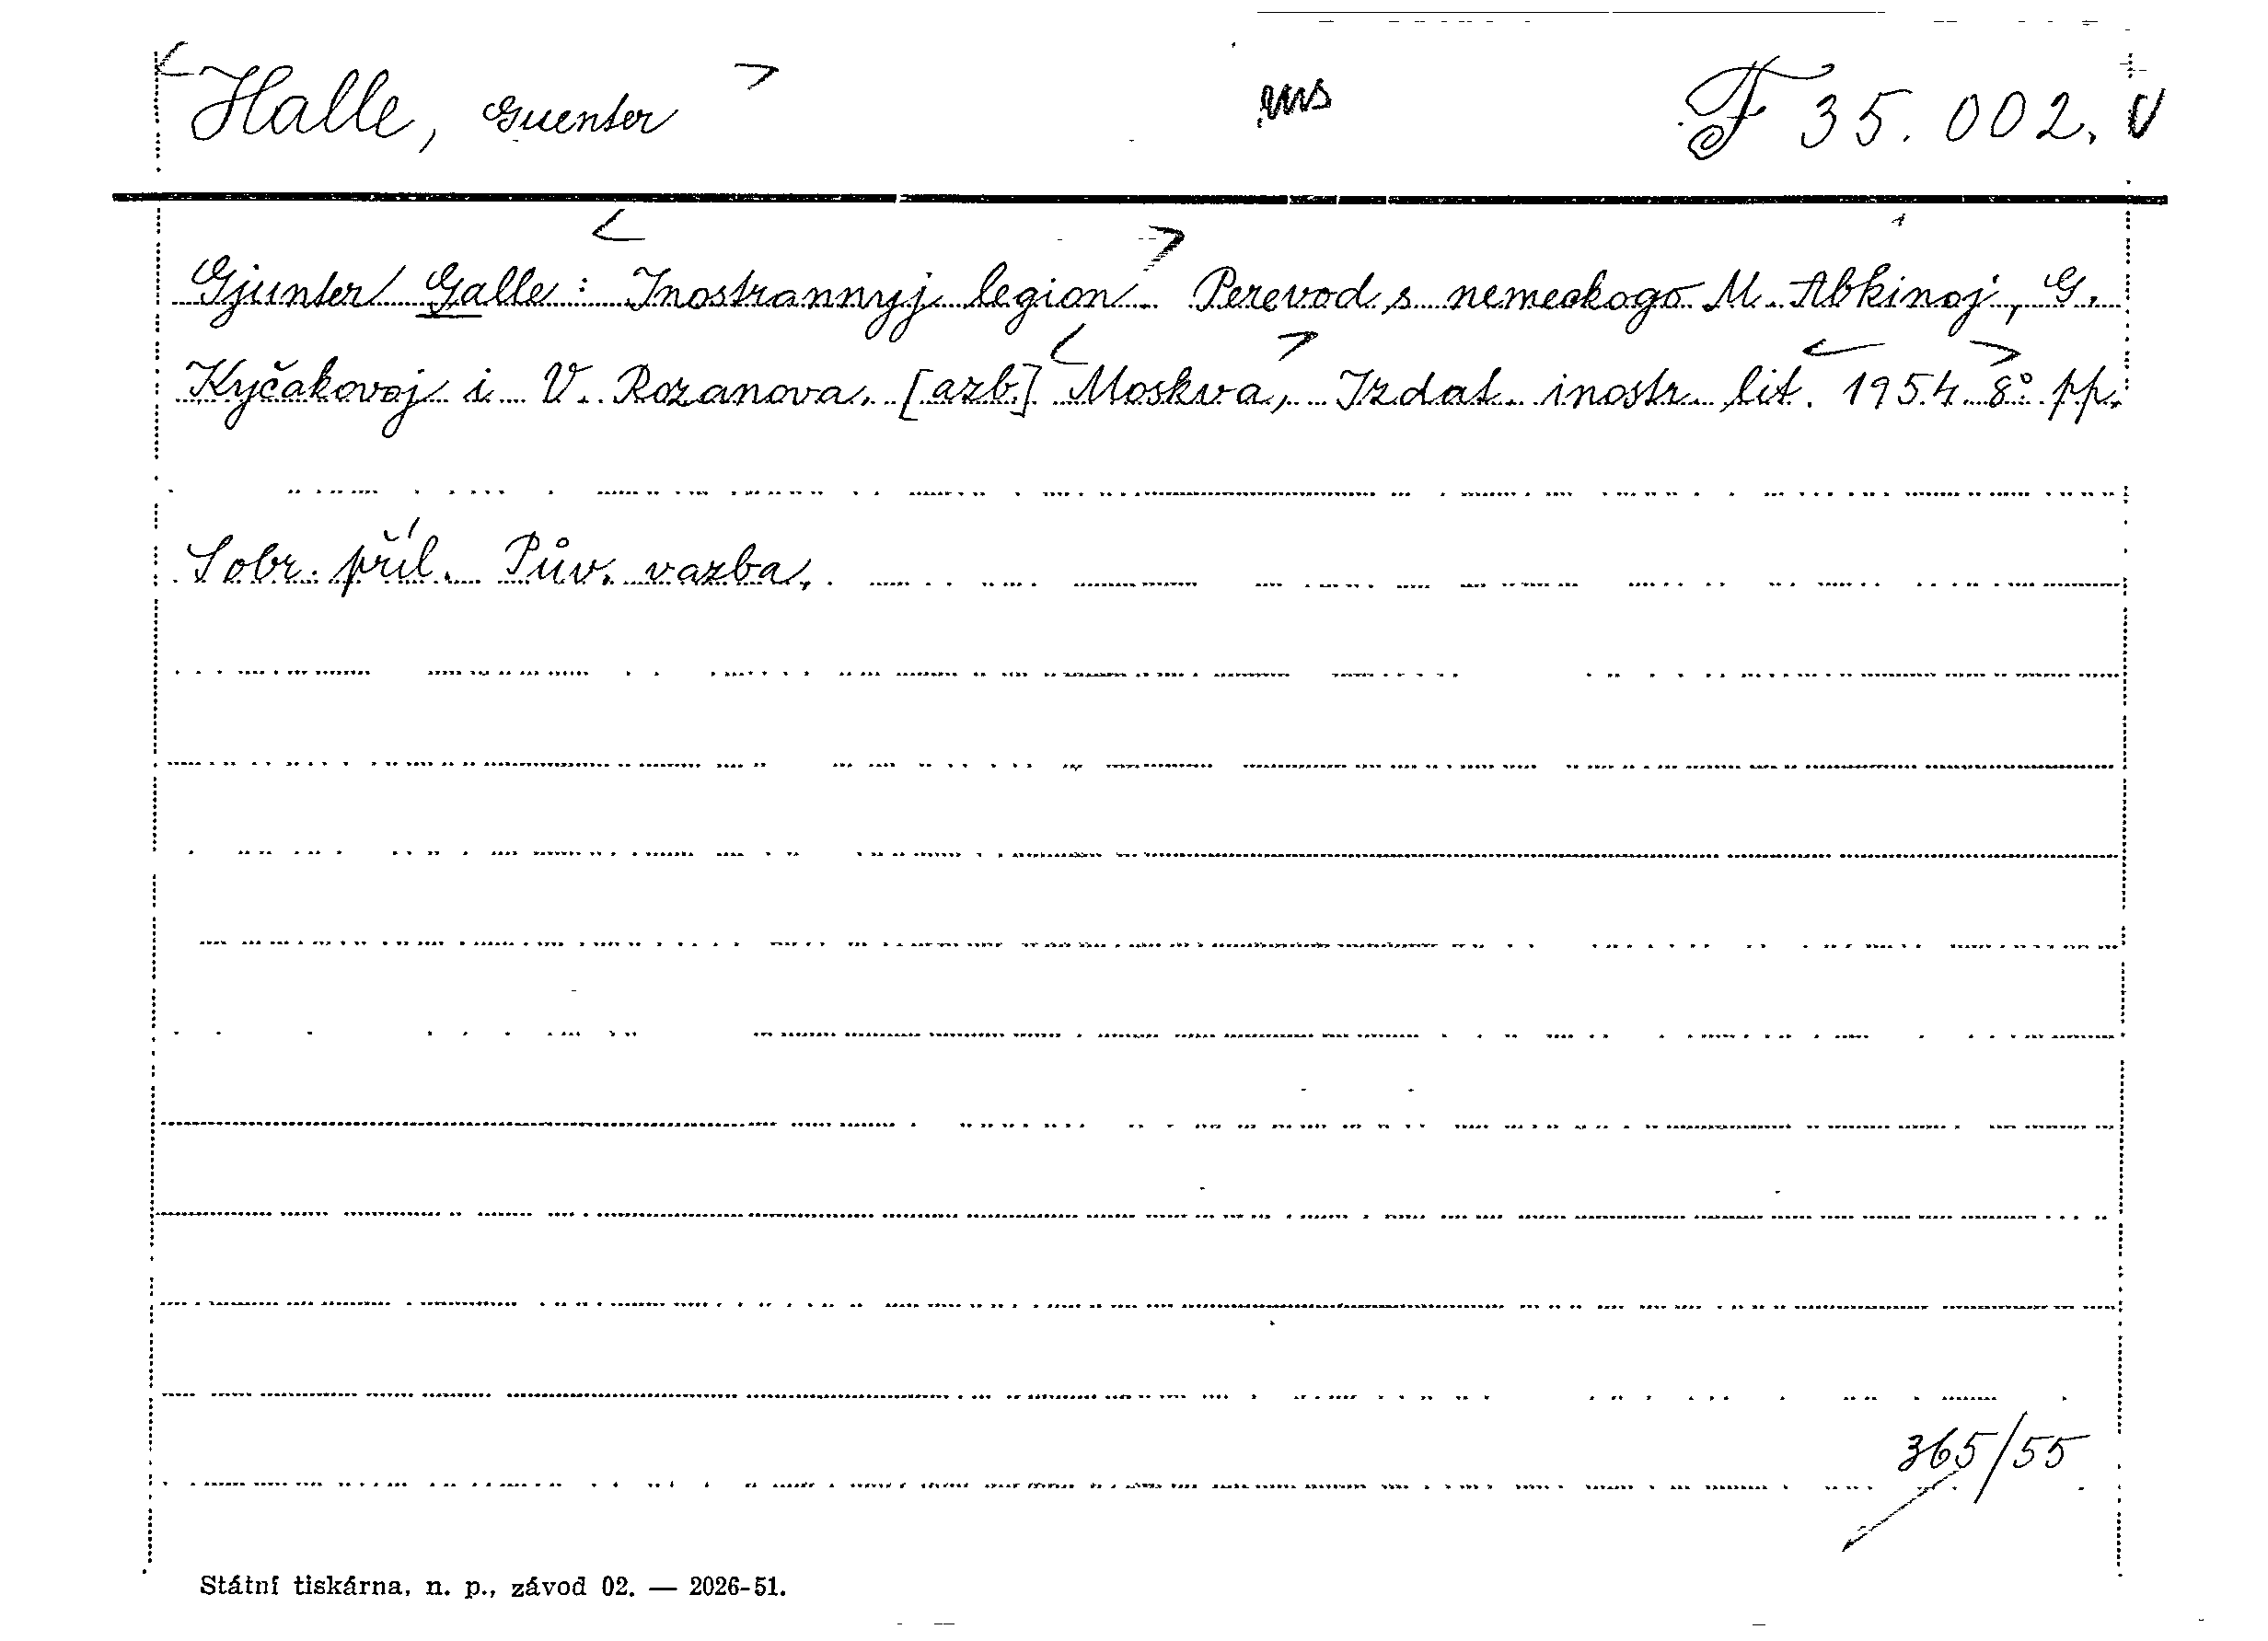 Halle, Guenter rus F 35.002.
Gjunter Galle: Inostrannyj legion. Perevod s nemeckogo M. Abkinoj, G.
Kyčakovoj i V. Rozanova. [azb.] Moskva, Izdat. inostr. lit. 1954. 8° pp.
Sobr. příl. Pův. vazba.
365/55
Státní tiskárna, n. p., závod 02. — 2026-51.